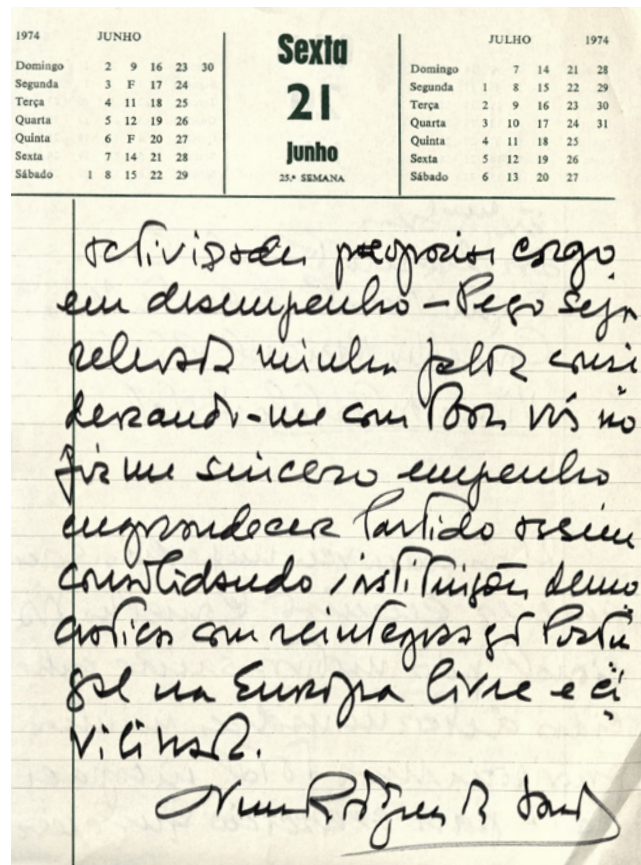 1974 JUNHO
Domingo 2 9 16 23 30
Segunda 3 F 17 24
Terça 4 11 18 25
Quarta 5 12 19 26
Quinta 6 F 20 27
Sexta 7 14 21 28
Sábado 1 8 15 22 29
Sexta
21
Junho
25.ª SEMANA
JULHO 1974
Domingo 7 14 21 28
Segunda 1 8 15 22 29
Terça 2 9 16 23 30
Quarta 3 10 17 24 31
Quinta 4 11 18 25
Sexta 5 12 19 26
Sábado 6 13 20 27
actividades proprias cargo
em desempenho - Peço seja
relevada minha falta consi
derando-me com vós no
firme sincero empenho
engrandecer Partido assim
consolidando instituição demo
cratica com reintegração Portu
gal na Europa livre e ci
vilizada.
Nuno Rodrigues dos Santos